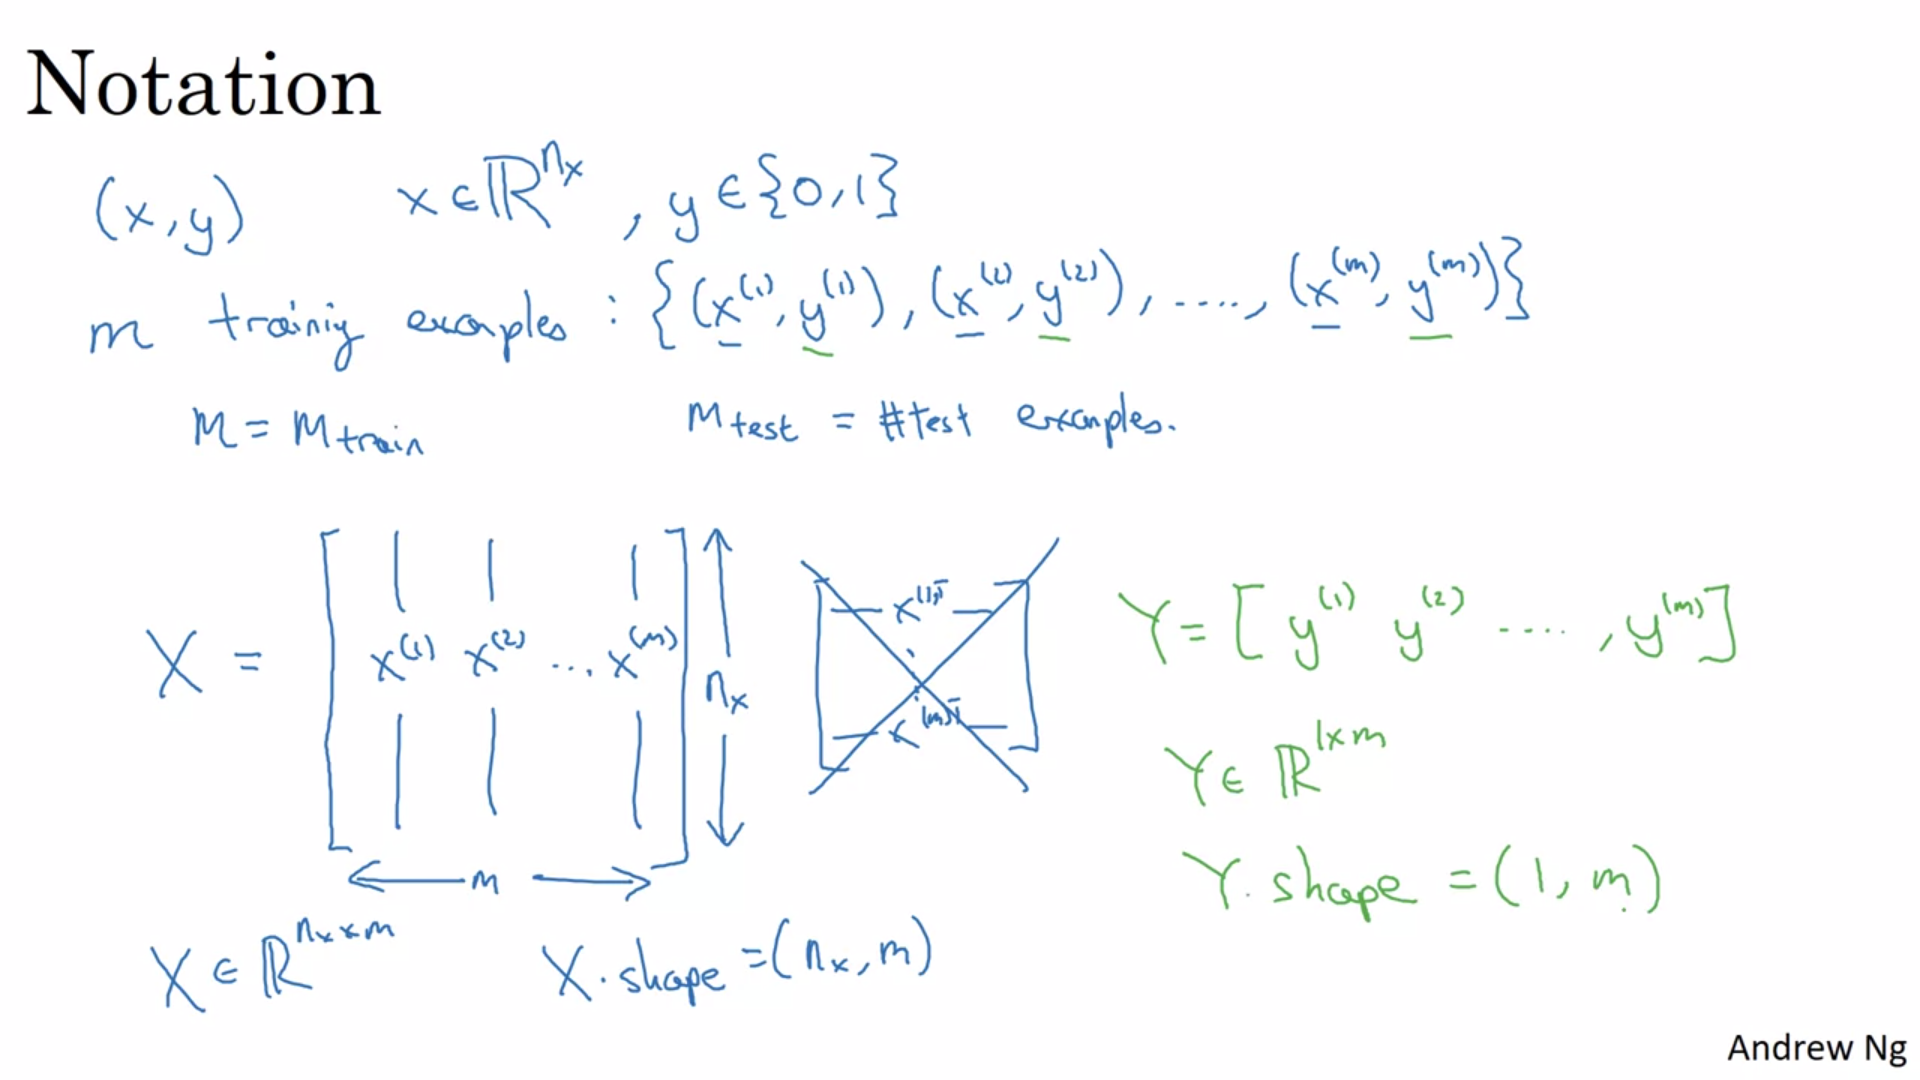 Notation
(x, y) x ∈ ℝ^{n_x}, y ∈ {0, 1}
m training examples : {(x^{(1)}, y^{(1)}), (x^{(2)}, y^{(2)}), ...., (x^{(m)}, y^{(m)})}
M = M_{train} M_{test} = #test examples.
X = [x^{(1)} x^{(2)} ... x^{(m)}] n_x
m
x^{(1)T}
x^{(m)T}
Y = [y^{(1)} y^{(2)} ...., y^{(m)}]
Y ∈ ℝ^{1×m}
Y.shape = (1, m)
X ∈ ℝ^{n_x × m} X.shape = (n_x, m)
Andrew Ng